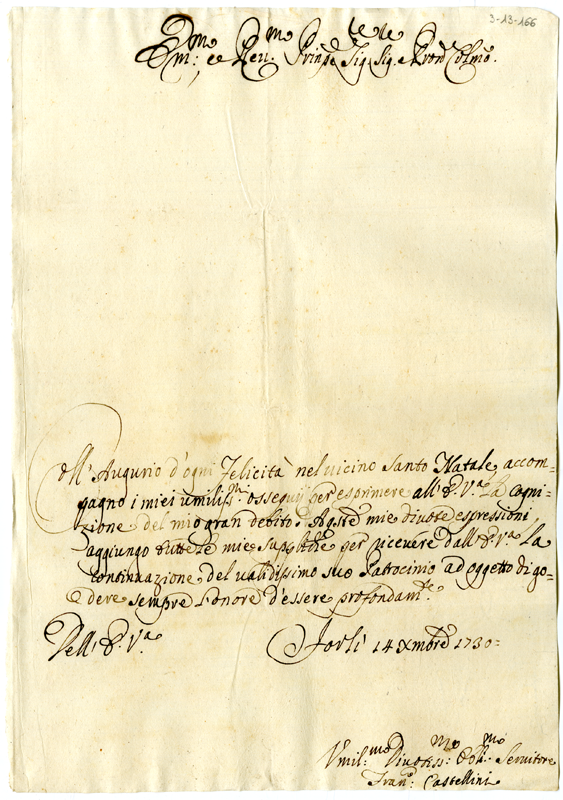 3-13-166
Em:mo e Rev.mo Prinpe Sigre Sig. e Pron Colmo.
Coll' Augurio d'ogni Felicità nel vicino Santo Natale, accom-
pagno i miei umiliss.mi ossequij per esprimere all' E. V.a La cogni-
zione del mio gran debito. A queste mie divote espressioni
aggiungo tutte le mie suppliche per ricevere dall' E. V.a La
continuazione del validissimo suo Patrocinio ad oggetto di go-
dere sempre l'onore d'essere profondam.te
Dell' E. V.a
Forlì 14 Xmbre 1730=
Vmil:mo Divotiss:mo Obl:mo Servitore
Fran.co Castellini